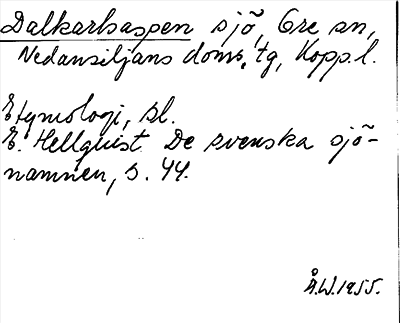 Dalkarlsaspen sjö, Ore sn,
Nedansiljans doms. tg, Kopp. l.
Etymologi, bl.
E. Hellquist De svenska sjö-
namnen, s. 44.
Å.W. 1955.